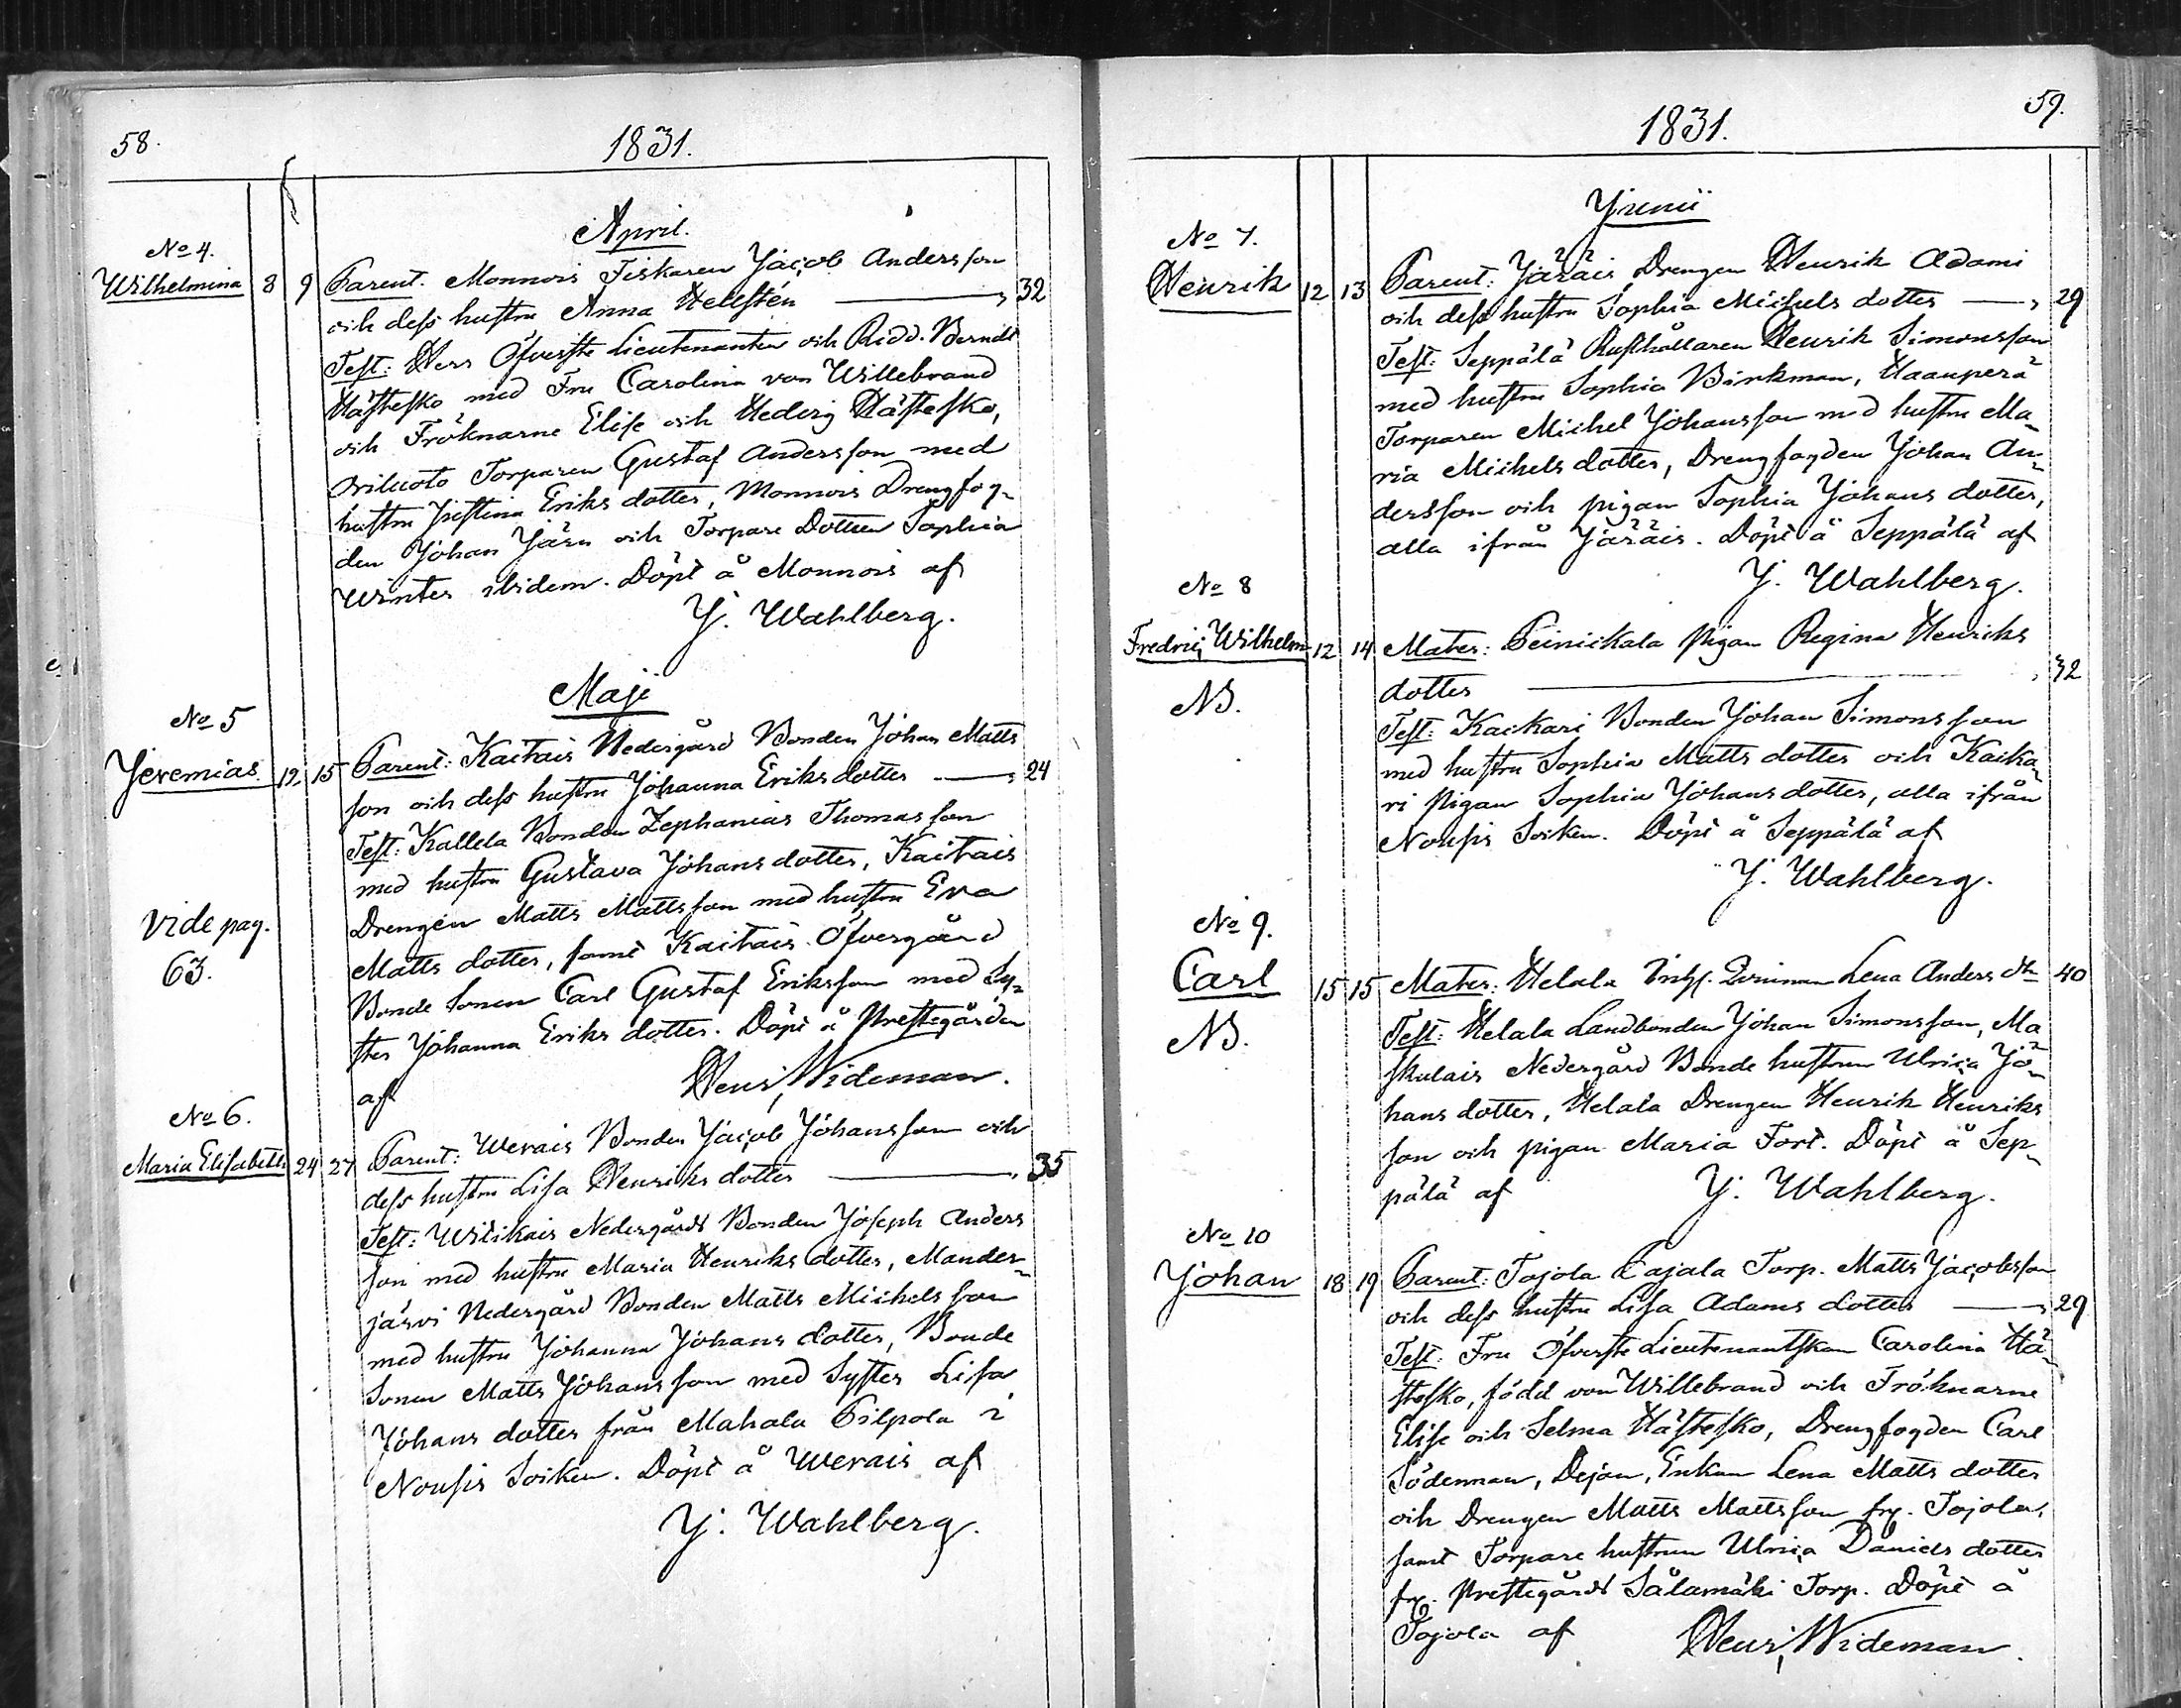 58.
1831.
April.
No 4.
Wilhelmina 8 9 Parent. Monnois Fiskaren Jacob Andersson
och dess hustru Anna Hellstén 32
Test: Herr Öfverste Lieutenanten och Ridd. Berndt
Hästesko med Fru Carolina von Willebrand
och Fröknarne Elise och Hedvig Hästesko,
Oriluoto Torparen Gustaf Andersson med
hustru Justina Eriks dotter, Monnois Drengfog-
den Johan Järn och Torpare Dottren Sophia
Winter ibidem. Döpt å Monnois af
J. Wahlberg.
Maji
No 5
Jeremias. 12 15 Parent: Kaitais Nedergård Bonden Johan Matts
son och dess hustru Johanna Eriks dotter 24
Test: Kallela Bonden Zephanias Thomasson
med hustru Gustava Johans dotter, Kaitais
Drengen Matts Mattsson med hustru Eva
Matts dotter, samt Kaitais Öfvergård
Vide pag.
63.
Bonde Sonen Carl Gustaf Eriksson med Sy-
ster Johanna Eriks dotter. Döpt å Prestegården
af Henr. Wideman.
No 6.
Maria Elisabeth 24 27 Parent: Werais Bonden Jacob Johansson och
dess hustru Lisa Henriks dotter 35
Test: Wilikais Nedergårds Bonden Joseph Anders
son med hustru Maria Henriks dotter, Mander-
järvi Nedergård Bonden Matts Michelsson
med hustru Johanna Johans dotter, Bonde
Sonen Matts Johansson med Syster Lisa
Johans dotter från Mahala Pilpola i
Nousis Socken. Döpt å Werais af
J. Wahlberg.
59.
1831.
Junii
No 7.
Henrik 12 13 Parent: Järäis Drengen Henrik Adami
och dess hustru Sophia Michels dotter 29
Test: Seppälä Rusthållaren Henrik Simonsson
med hustru Sophia Birkman, Haanperä
Torparen Michel Johansson med hustru Ma-
ria Michels dotter, Drengfogden Johan An-
dersson och pigan Sophia Johans dotter,
alla ifrån Järäis. Döpt å Seppälä af
J. Wahlberg.
No 8
Fredric Wilhelm 12 14 Mater: Peinickala pigan Regina Henriks
dotter 32
NB.
Test: Kaikari Bonden Johan Simonsson
med hustru Sophia Matts dotter och Kaika-
ri pigan Sophia Johans dotter, alla ifrån
Nousis Socken. Döpt å Seppälä af
J. Wahlberg.
No 9.
Carl 15 15 Mater: Helala Inhs. Qvinnan Lena Anders dtr 40
NB.
Test: Helala Landbonden Johan Simonsson, Ma
skulais Nedergård Bonde hustrun Ulrica Jo-
hans dotter, Helala Drengen Henrik Henriks
son och pigan Maria Fort. Döpt å Sep-
pälä af J. Wahlberg.
No 10
Johan 18 19 Parent: Tojola Cajala Torp. Matts Jacobsson
och dess hustru Lisa Adams dotter 29
Test: Fru Öfverste Lieutenantskan Carolina Hä-
stesko, född von Willebrand och Fröknarne
Elise och Selma Hästesko, Drengfogden Carl
Söderman, Dejan, Enkan Lena Matts dotter
och Drengen Matts Mattsson fr. Tojola,
samt Torpare hustrun Ulrica Daniels dotter
fr. Prestegårds Sälamäki Torp. Döpt å
Tojola af Henr. Wideman.